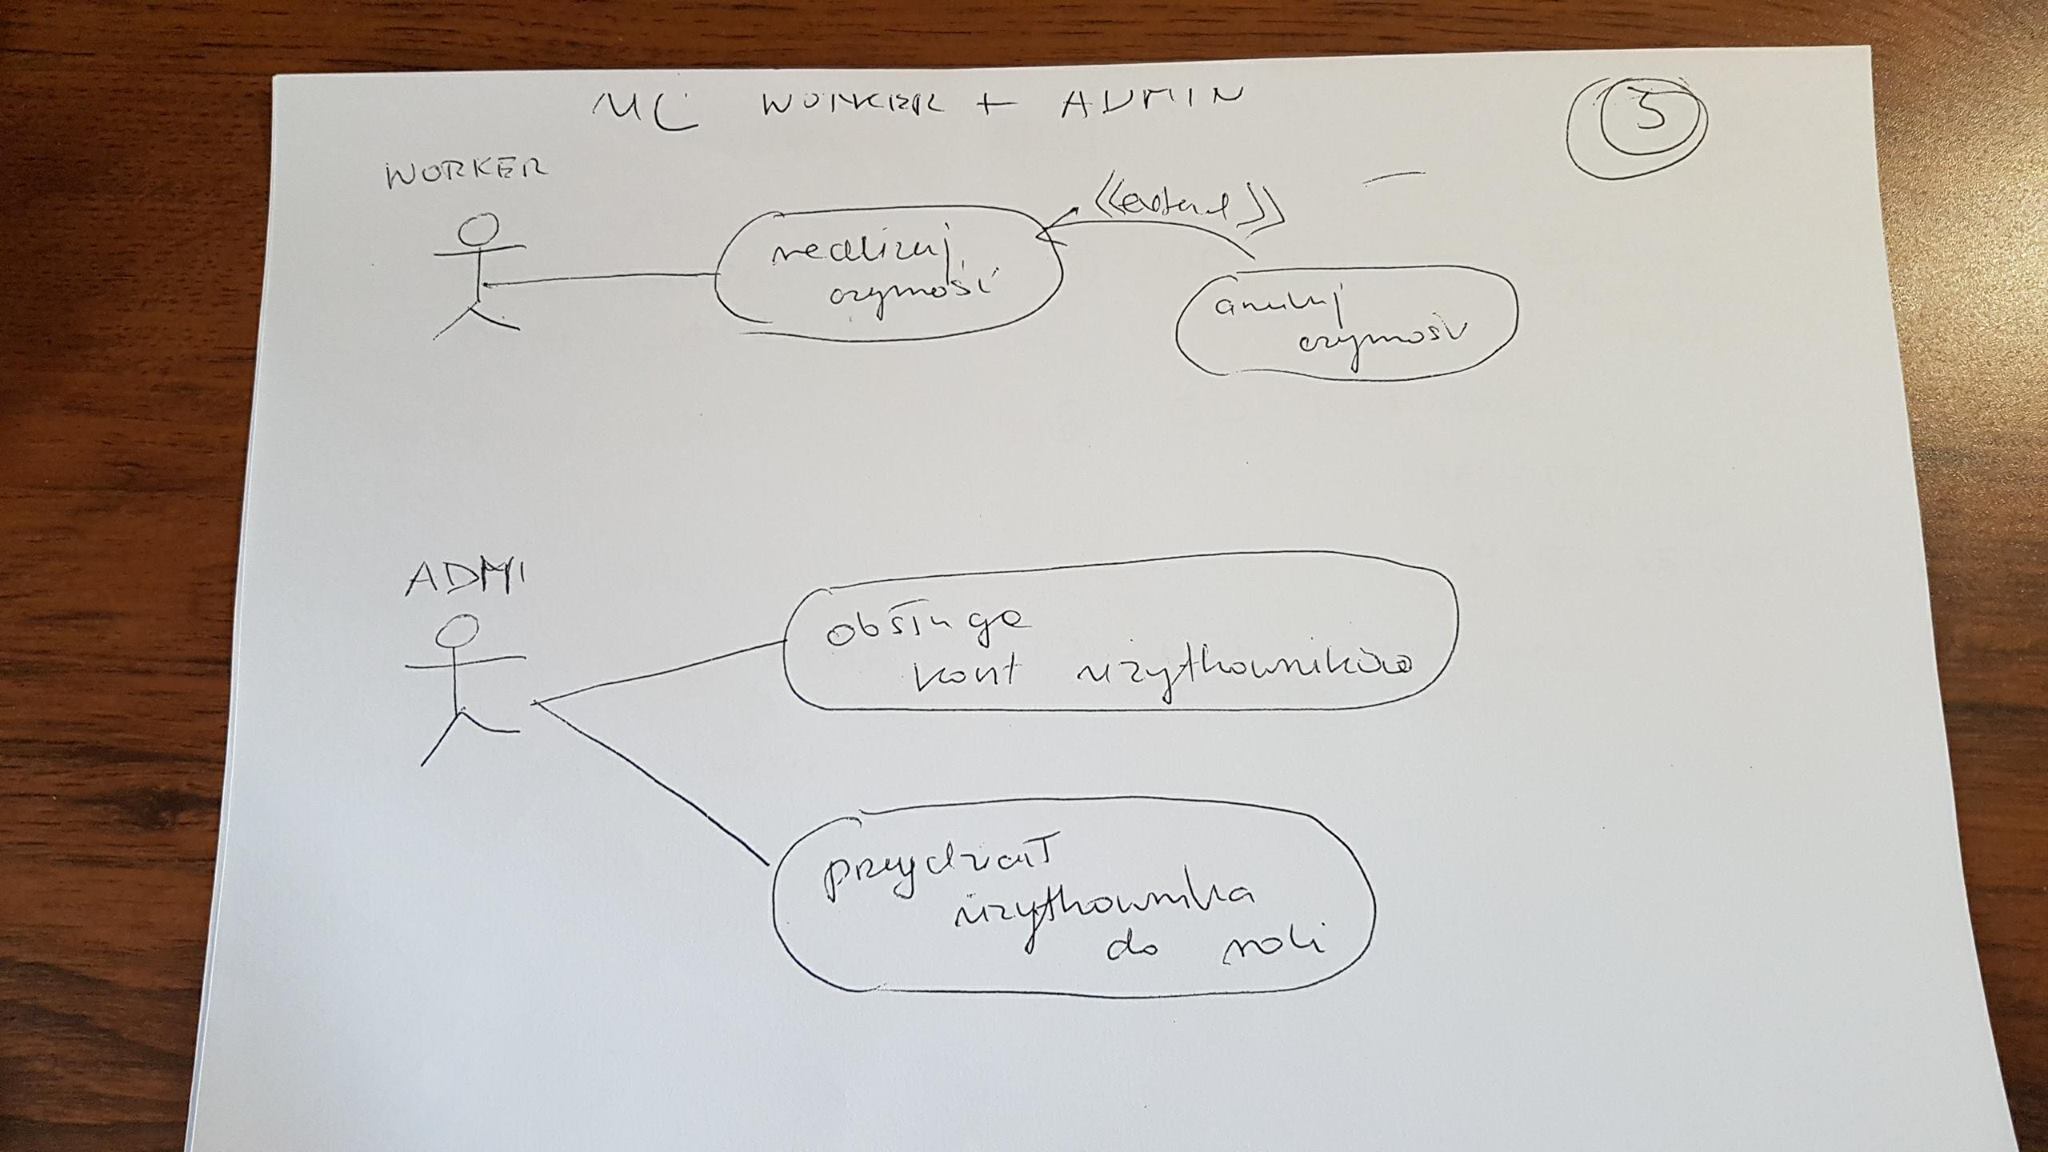 UC WORKER + ADMIN
5
WORKER
<<extend>>
realizuj
czynność
anuluj
czynność
ADMI
obsługa
kont użytkowników
przydział
użytkownika
do roli